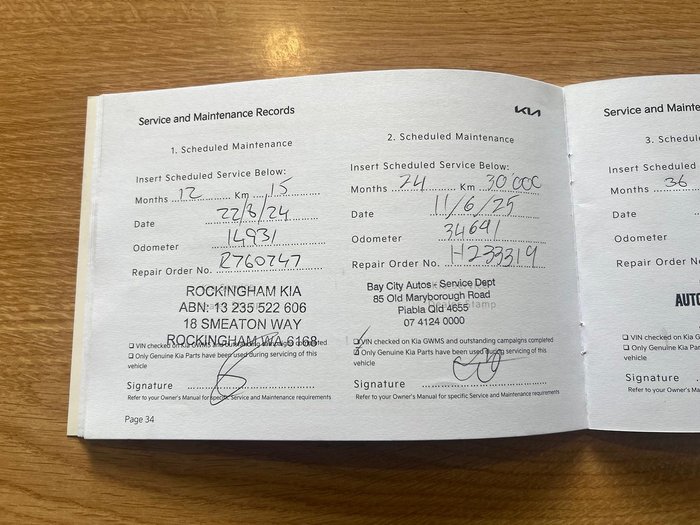 Service and Maintenance Records
1. Scheduled Maintenance
Insert Scheduled Service Below:
Months 12 Km 15
Date 22/8/24
Odometer 14931
Repair Order No. R760747
ROCKINGHAM KIA
ABN: 13 235 522 606
18 SMEATON WAY
ROCKINGHAM WA 6168
VIN checked on Kia GWMS and outstanding campaigns completed
Only Genuine Kia Parts have been used during servicing of this
vehicle
Signature
Refer to your Owner's Manual for specific Service and Maintenance requirements
Page 34
KIA
2. Scheduled Maintenance
Insert Scheduled Service Below:
Months 24 Km 30'000
Date 11/6/25
Odometer 34691
Repair Order No. H233319
Bay City Autos - Service Dept
85 Old Maryborough Road
Pialba Qld 4655
07 4124 0000
VIN checked on Kia GWMS and outstanding campaigns completed
Only Genuine Kia Parts have been used during servicing of this
vehicle
Signature
Refer to your Owner's Manual for specific Service and Maintenance requirements
Service and Mainte
3. Schedul
Insert Scheduled
Months 36
Date
Odometer
Repair Order No
AUTO
VIN checked on Kia G
Only Genuine Kia Par
vehicle
Signature
Refer to your Owner's Ma